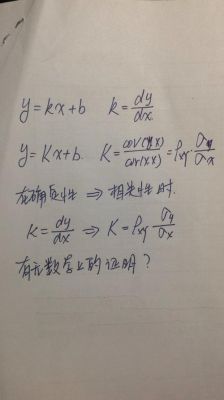 y=kx+b k=dy/dx
y=Kx+b. K=cov(y,x)/var(x,x)=ρxy·σy/σx
在确定性 ⇒ 相关性时.
K=dy/dx ⇒ K=ρxy σy/σx
有无数学上的证明?